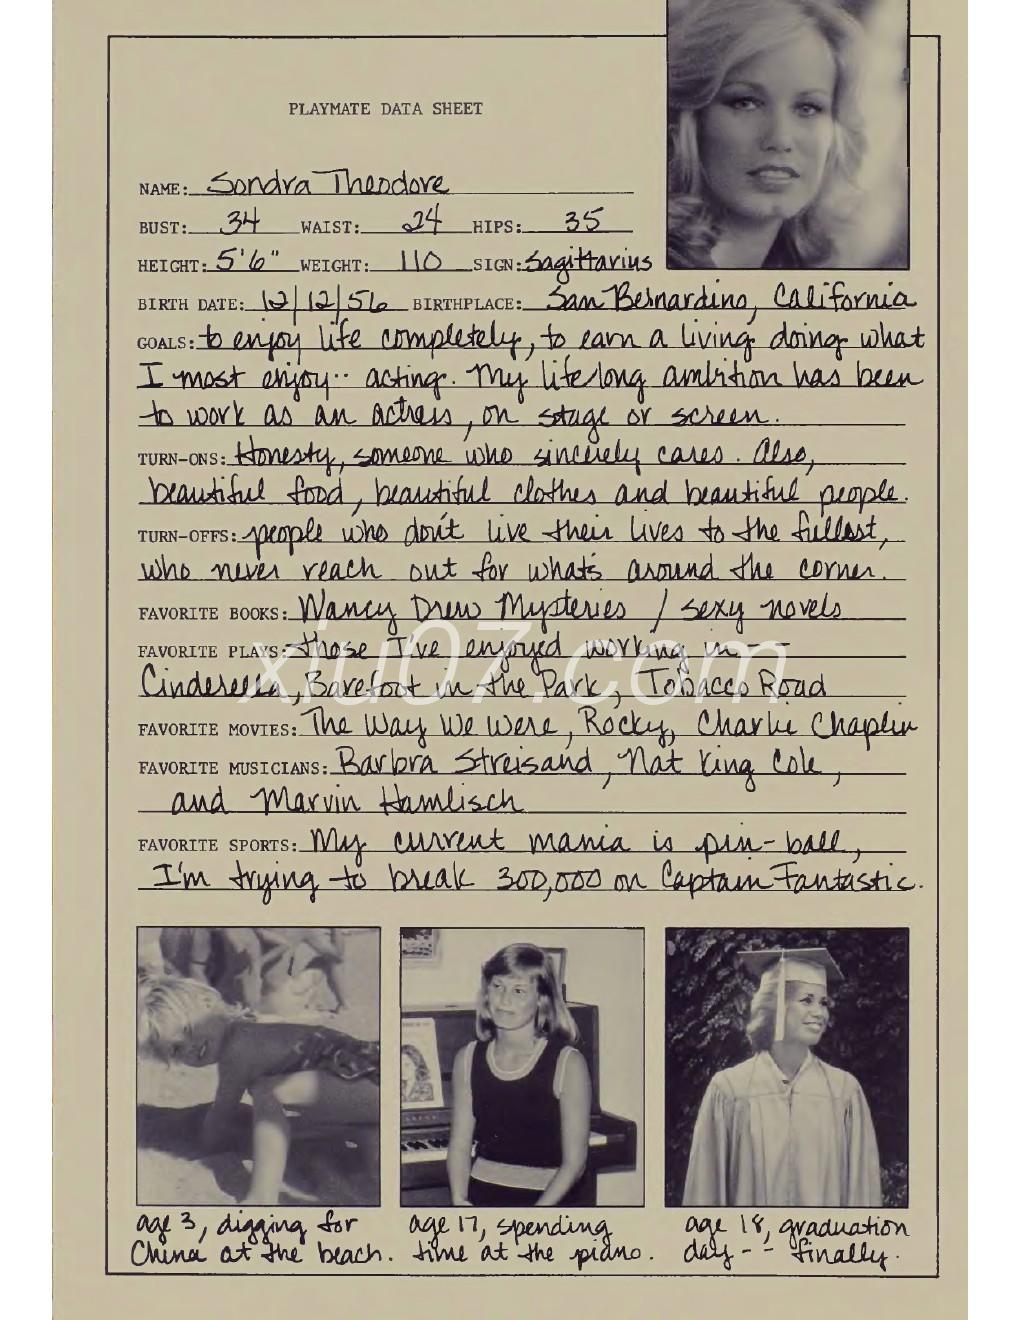 PLAYMATE DATA SHEET
NAME: Sondra Theodore
BUST: 34 WAIST: 24 HIPS: 35
HEIGHT: 5'6" WEIGHT: 110 SIGN: Sagittarius
BIRTH DATE: 12/12/56 BIRTHPLACE: San Bernardino, California
GOALS: to enjoy life completely, to earn a living doing what
I most enjoy-- acting. My life long ambition has been
to work as an actress, on stage or screen.
TURN-ONS: Honesty, someone who sincerely cares. Also,
beautiful food, beautiful clothes and beautiful people.
TURN-OFFS: people who don't live their lives to the fullest,
who never reach out for what's around the corner.
FAVORITE BOOKS: Nancy Drew Mysteries / sexy novels
FAVORITE PLAYS: those I've enjoyed working in --
Cinderella, Barefoot in the Park, Tobacco Road
xiu07.com
FAVORITE MOVIES: The Way We Were, Rocky, Charlie Chaplin
FAVORITE MUSICIANS: Barbra Streisand, Nat King Cole,
and Marvin Hamlisch
FAVORITE SPORTS: My current mania is pin-ball,
I'm trying to break 300,000 on Captain Fantastic.
age 3, digging for
China at the beach.
age 17, spending
time at the piano.
age 18, graduation
day -- finally.